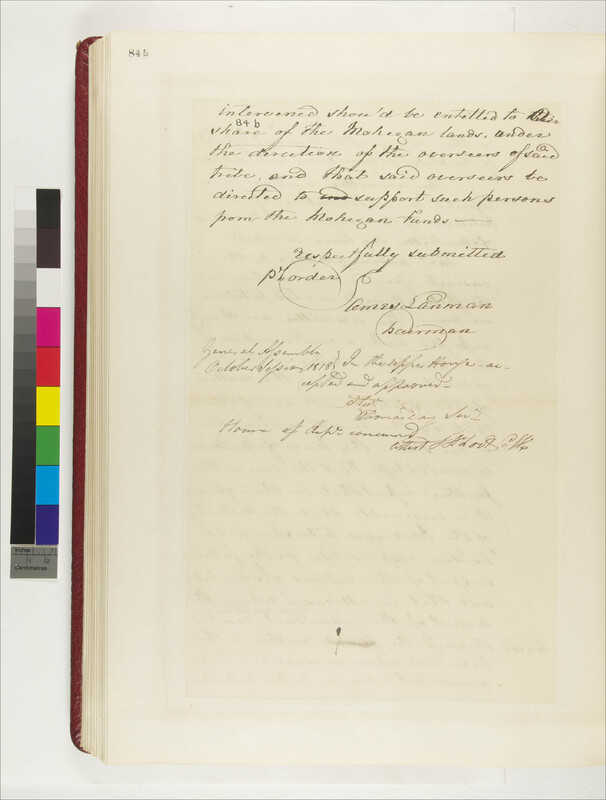 84b
intervened shou'd be entitled to their
84 b
share of the Mohegan lands, under
the direction of the overseers of said
tribe, and that said overseers be
directed to and support such persons
from the Mohegan Funds —
respectfully submitted
pr order
James Lanman
Chairman
General Assembly
October Session 1818 } In the upper House - ac-
cepted and approved -
Thomas Day Secy
House of Reps concurred
attest
Inches 1
1 2
Centimetres